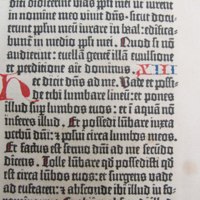 diti didicerint vias ppli mei ut iurent
in nomine meo vivit dñs · sicut docu-
erunt pplm meum iurare in baal · edifica-
bunt̄ in medio ppli mei Quod si nō
audierint : evellā gentē illam evulsione
et perditione ait dominus · XIII
Hec dicit dñs ad me · Vade et possi-
de tibi lumbare lineū : et pones
illud sup lumbos tuos : et ī aquam non
inferes illud · Et possedi lūbare iuxta
verbū dñi : et posui circa lumbos meos ·
Et factus est sermo dñi ad me secundo
dicens · Tolle lūbare qd possedisti qd
est circa lūbos tuos : et surgens vade
ad eufraten : et absconde ibi illud in fo-